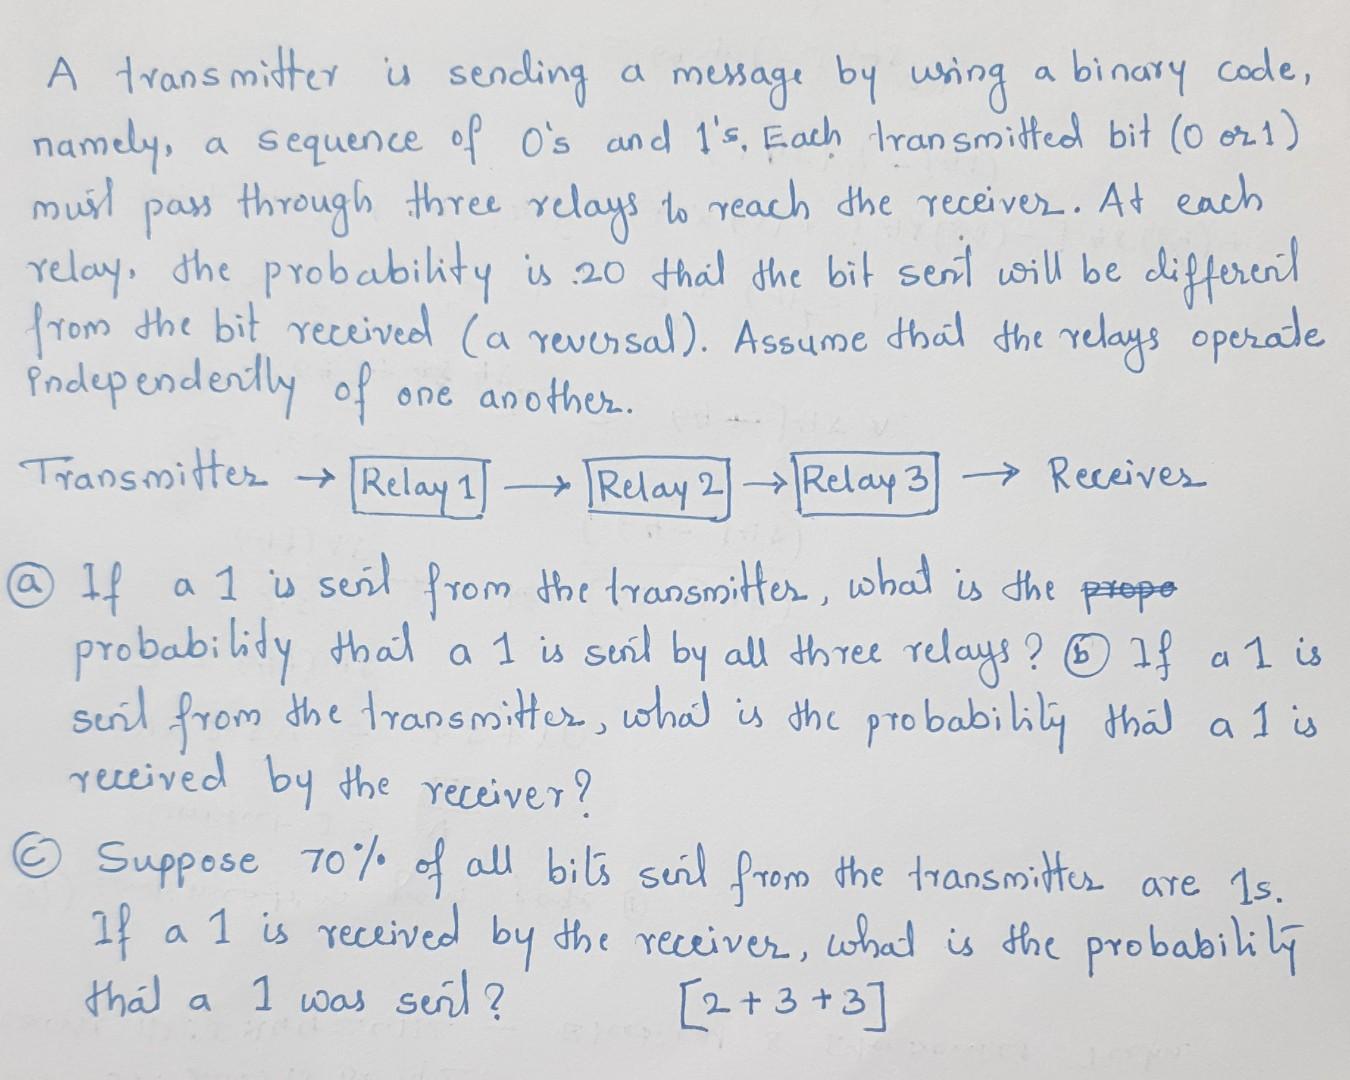 A transmitter is sending a message by using a binary code,
namely, a sequence of 0's and 1's. Each transmitted bit (0 or 1)
must pass through three relays to reach the receiver. At each
relay, the probability is .20 that the bit sent will be different
from the bit received (a reversal). Assume that the relays operate
independently of one another.
Transmitter → Relay 1 → Relay 2 → Relay 3 → Receiver
ⓐ If a 1 is sent from the transmitter, what is the propo
probability that a 1 is sent by all three relays? ⓑ If a 1 is
sent from the transmitter, what is the probability that a 1 is
received by the receiver?
ⓒ Suppose 70% of all bits sent from the transmitter are 1s.
If a 1 is received by the receiver, what is the probability
that a 1 was sent? [2+3+3]